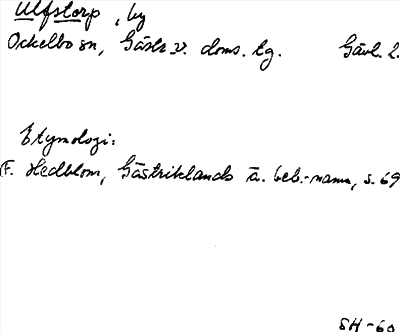 Ulfstorp, by
Ockelbo sn, Gästr. v. doms. lg. Gävl. l.
Etymologi:
F. Hedblom, Gästriklands ä. beb.-namn, s. 69
SH-60